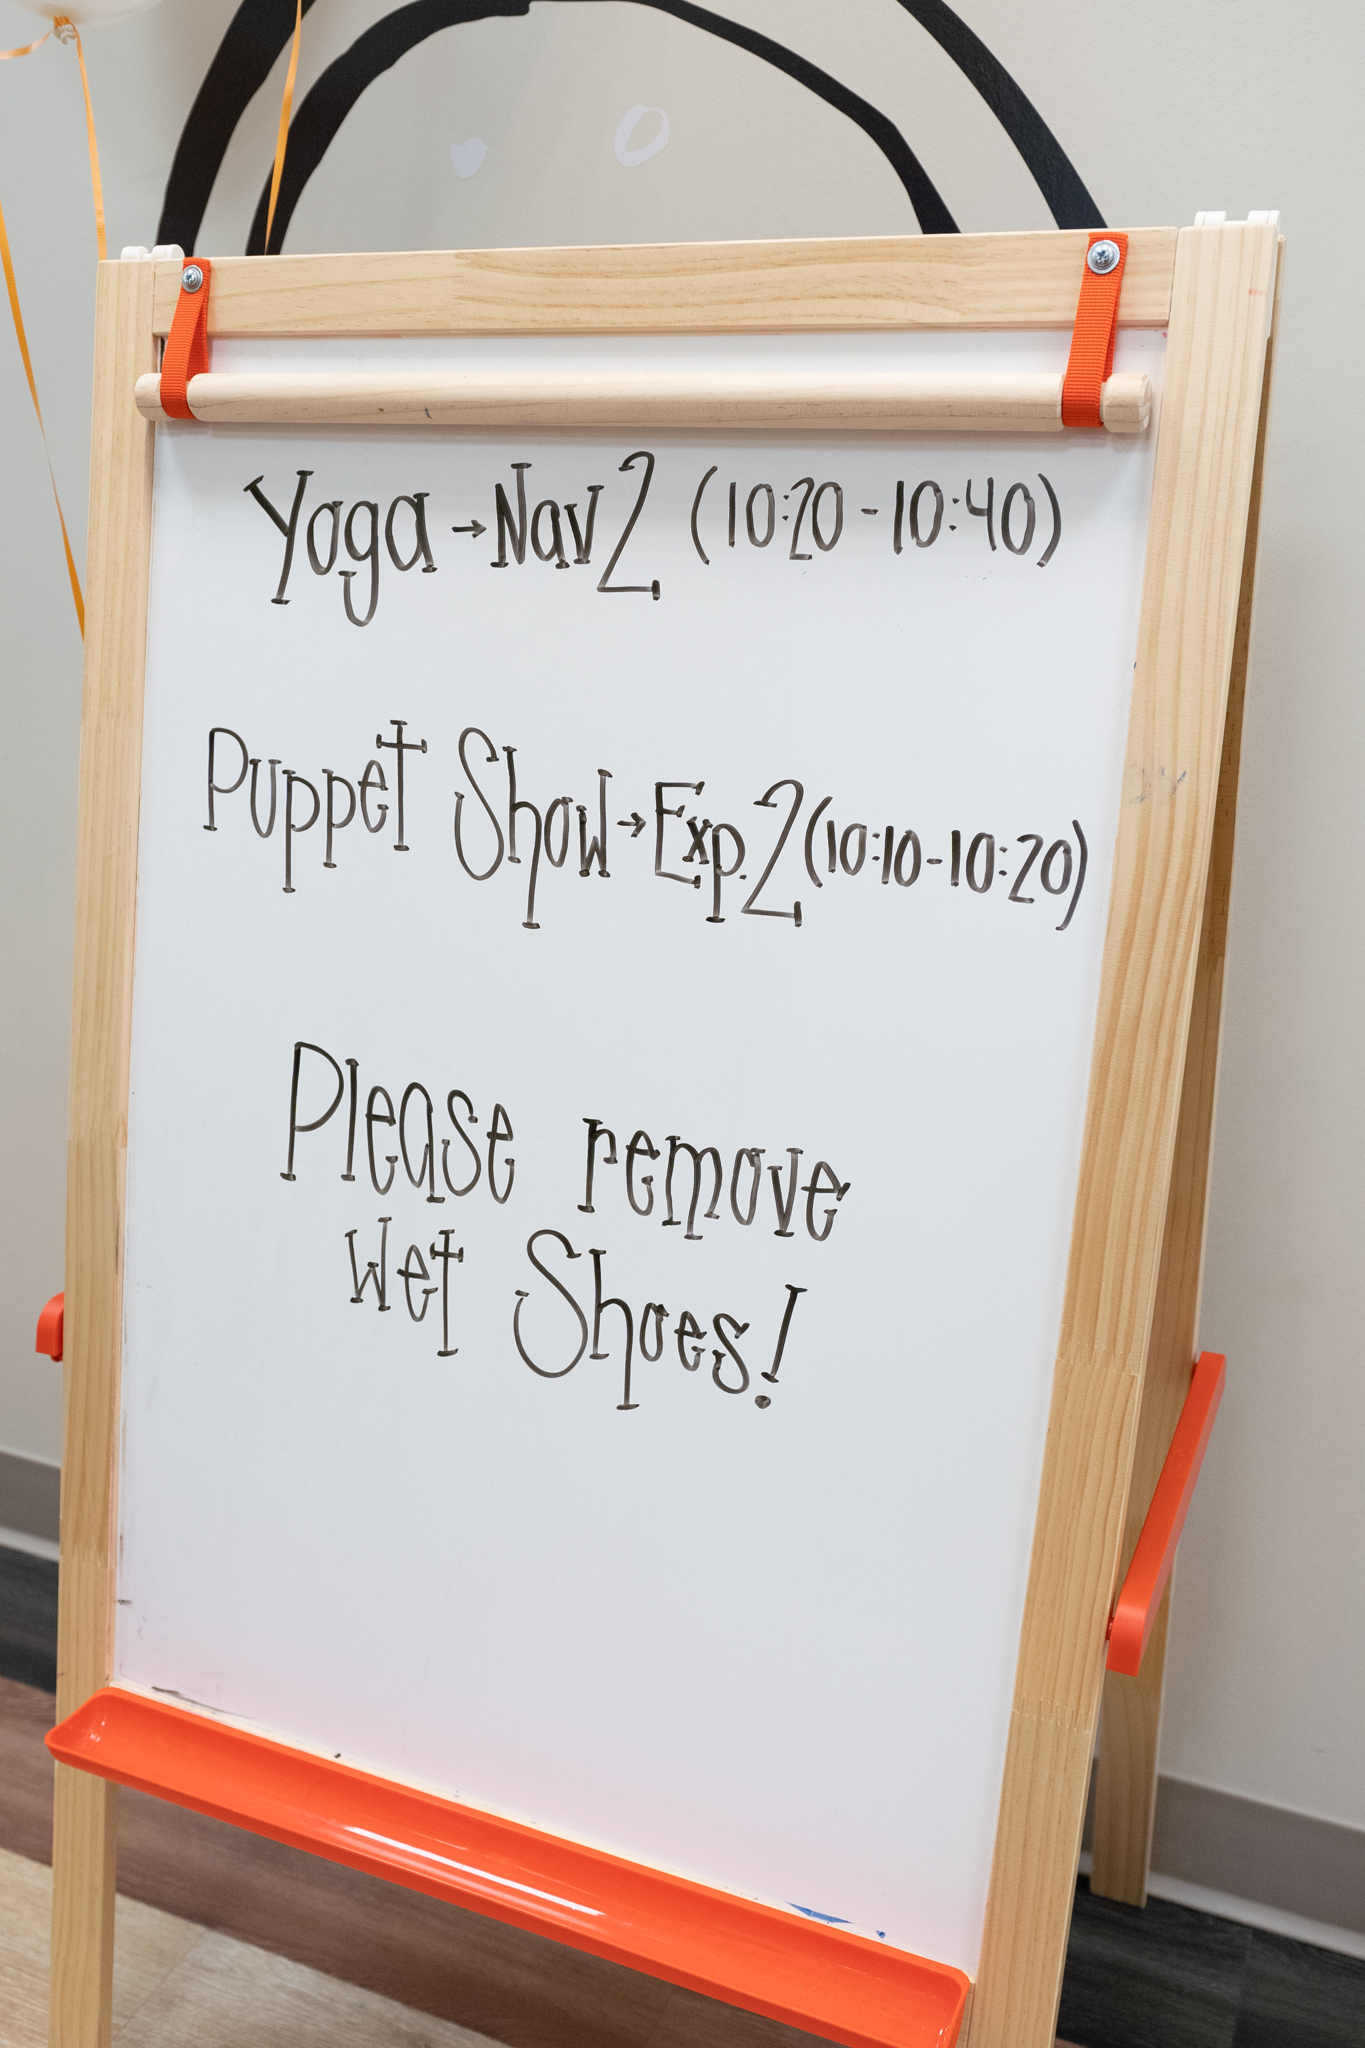 Yoga → Nav 2 (10:20 - 10:40)
Puppet Show → Exp. 2 (10:10 - 10:20)
Please remove
Wet Shoes!